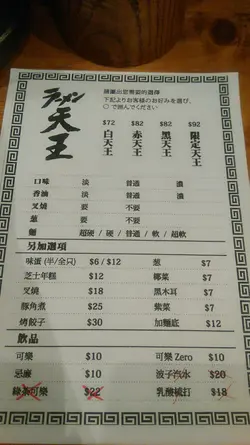 ラーメン
天王
請圈出您需要的選擇
下記よりお客様のお好みを選び、
○で囲んでください
$72 $82 $82 $92
白天王 赤天王 黑天王 限定天王
口味 淡 普通 濃
香油 淡 普通 濃
叉燒 要 不要
蔥 要 不要
麵 超硬 / 硬 / 普通 / 軟 / 超軟
另加選項
味蛋 (半/全只) $6 / $12 蔥 $7
芝士年糕 $12 椰菜 $7
叉燒 $18 黑木耳 $7
豚角煮 $25 紫菜 $7
烤餃子 $30 加麵底 $12
飲品
可樂 $10 可樂 Zero $10
忌廉 $10 波子汽水 $20
綠茶可樂 $22 乳酸梳打 $18